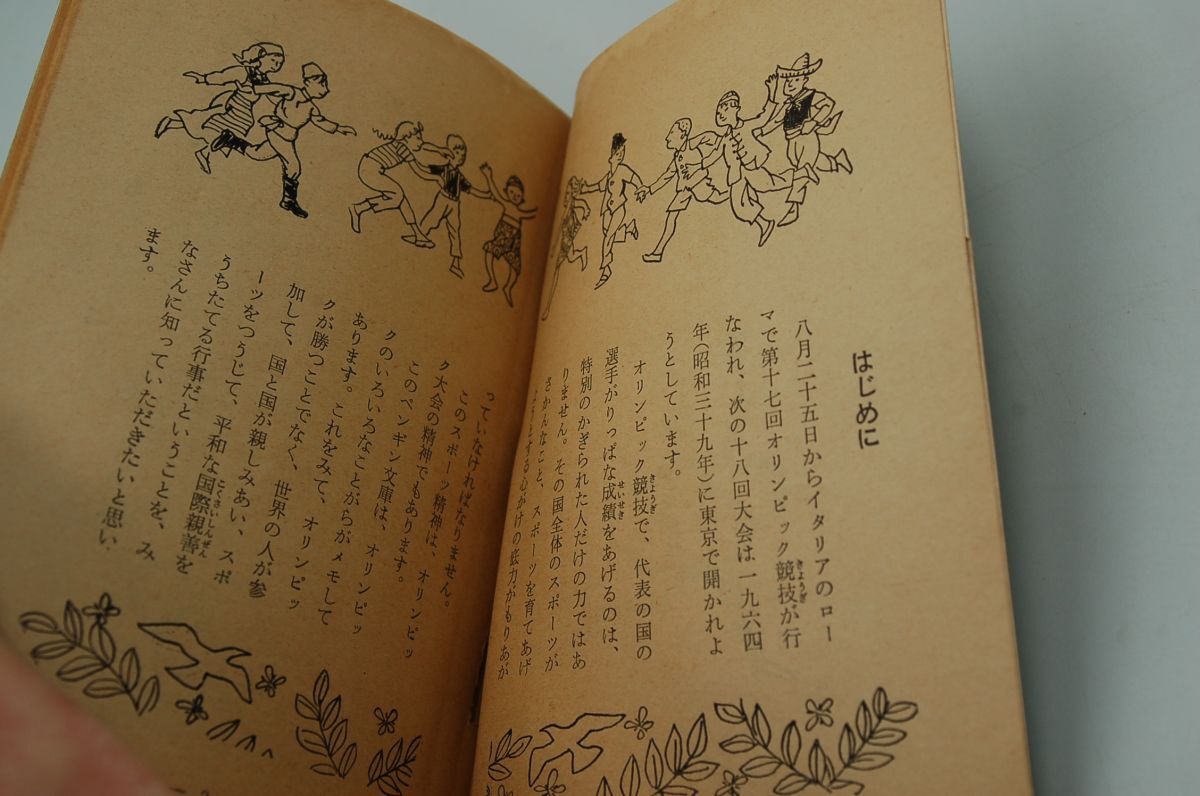 はじめに
八月二十五日からイタリアのロー
マで第十七回オリンピック競技が行
きょうぎ
なわれ、次の十八回大会は一九六四
年(昭和三十九年)に東京で開かれよ
うとしています。
オリンピック競技で、代表の国の
きょうぎ
選手がりっぱな成績をあげるのは、
せいせき
特別のかぎられた人だけの力ではあ
りません。その国全体のスポーツが
さかんなこと、スポーツを育てあげ
ようとする心がけの底力がもりあが
っていなければなりません。
このスポーツ精神は、オリンピッ
ク大会の精神でもあります。
このペンギン文庫は、オリンピッ
クのいろいろなことがらがメモして
あります。これをみて、オリンピッ
クが勝つことでなく、世界の人が参
加して、国と国が親しみあい、スポ
ーツをつうじて、平和な国際親善を
こくさいしんぜん
うちたてる行事だということを、み
なさんに知っていただきたいと思い
ます。